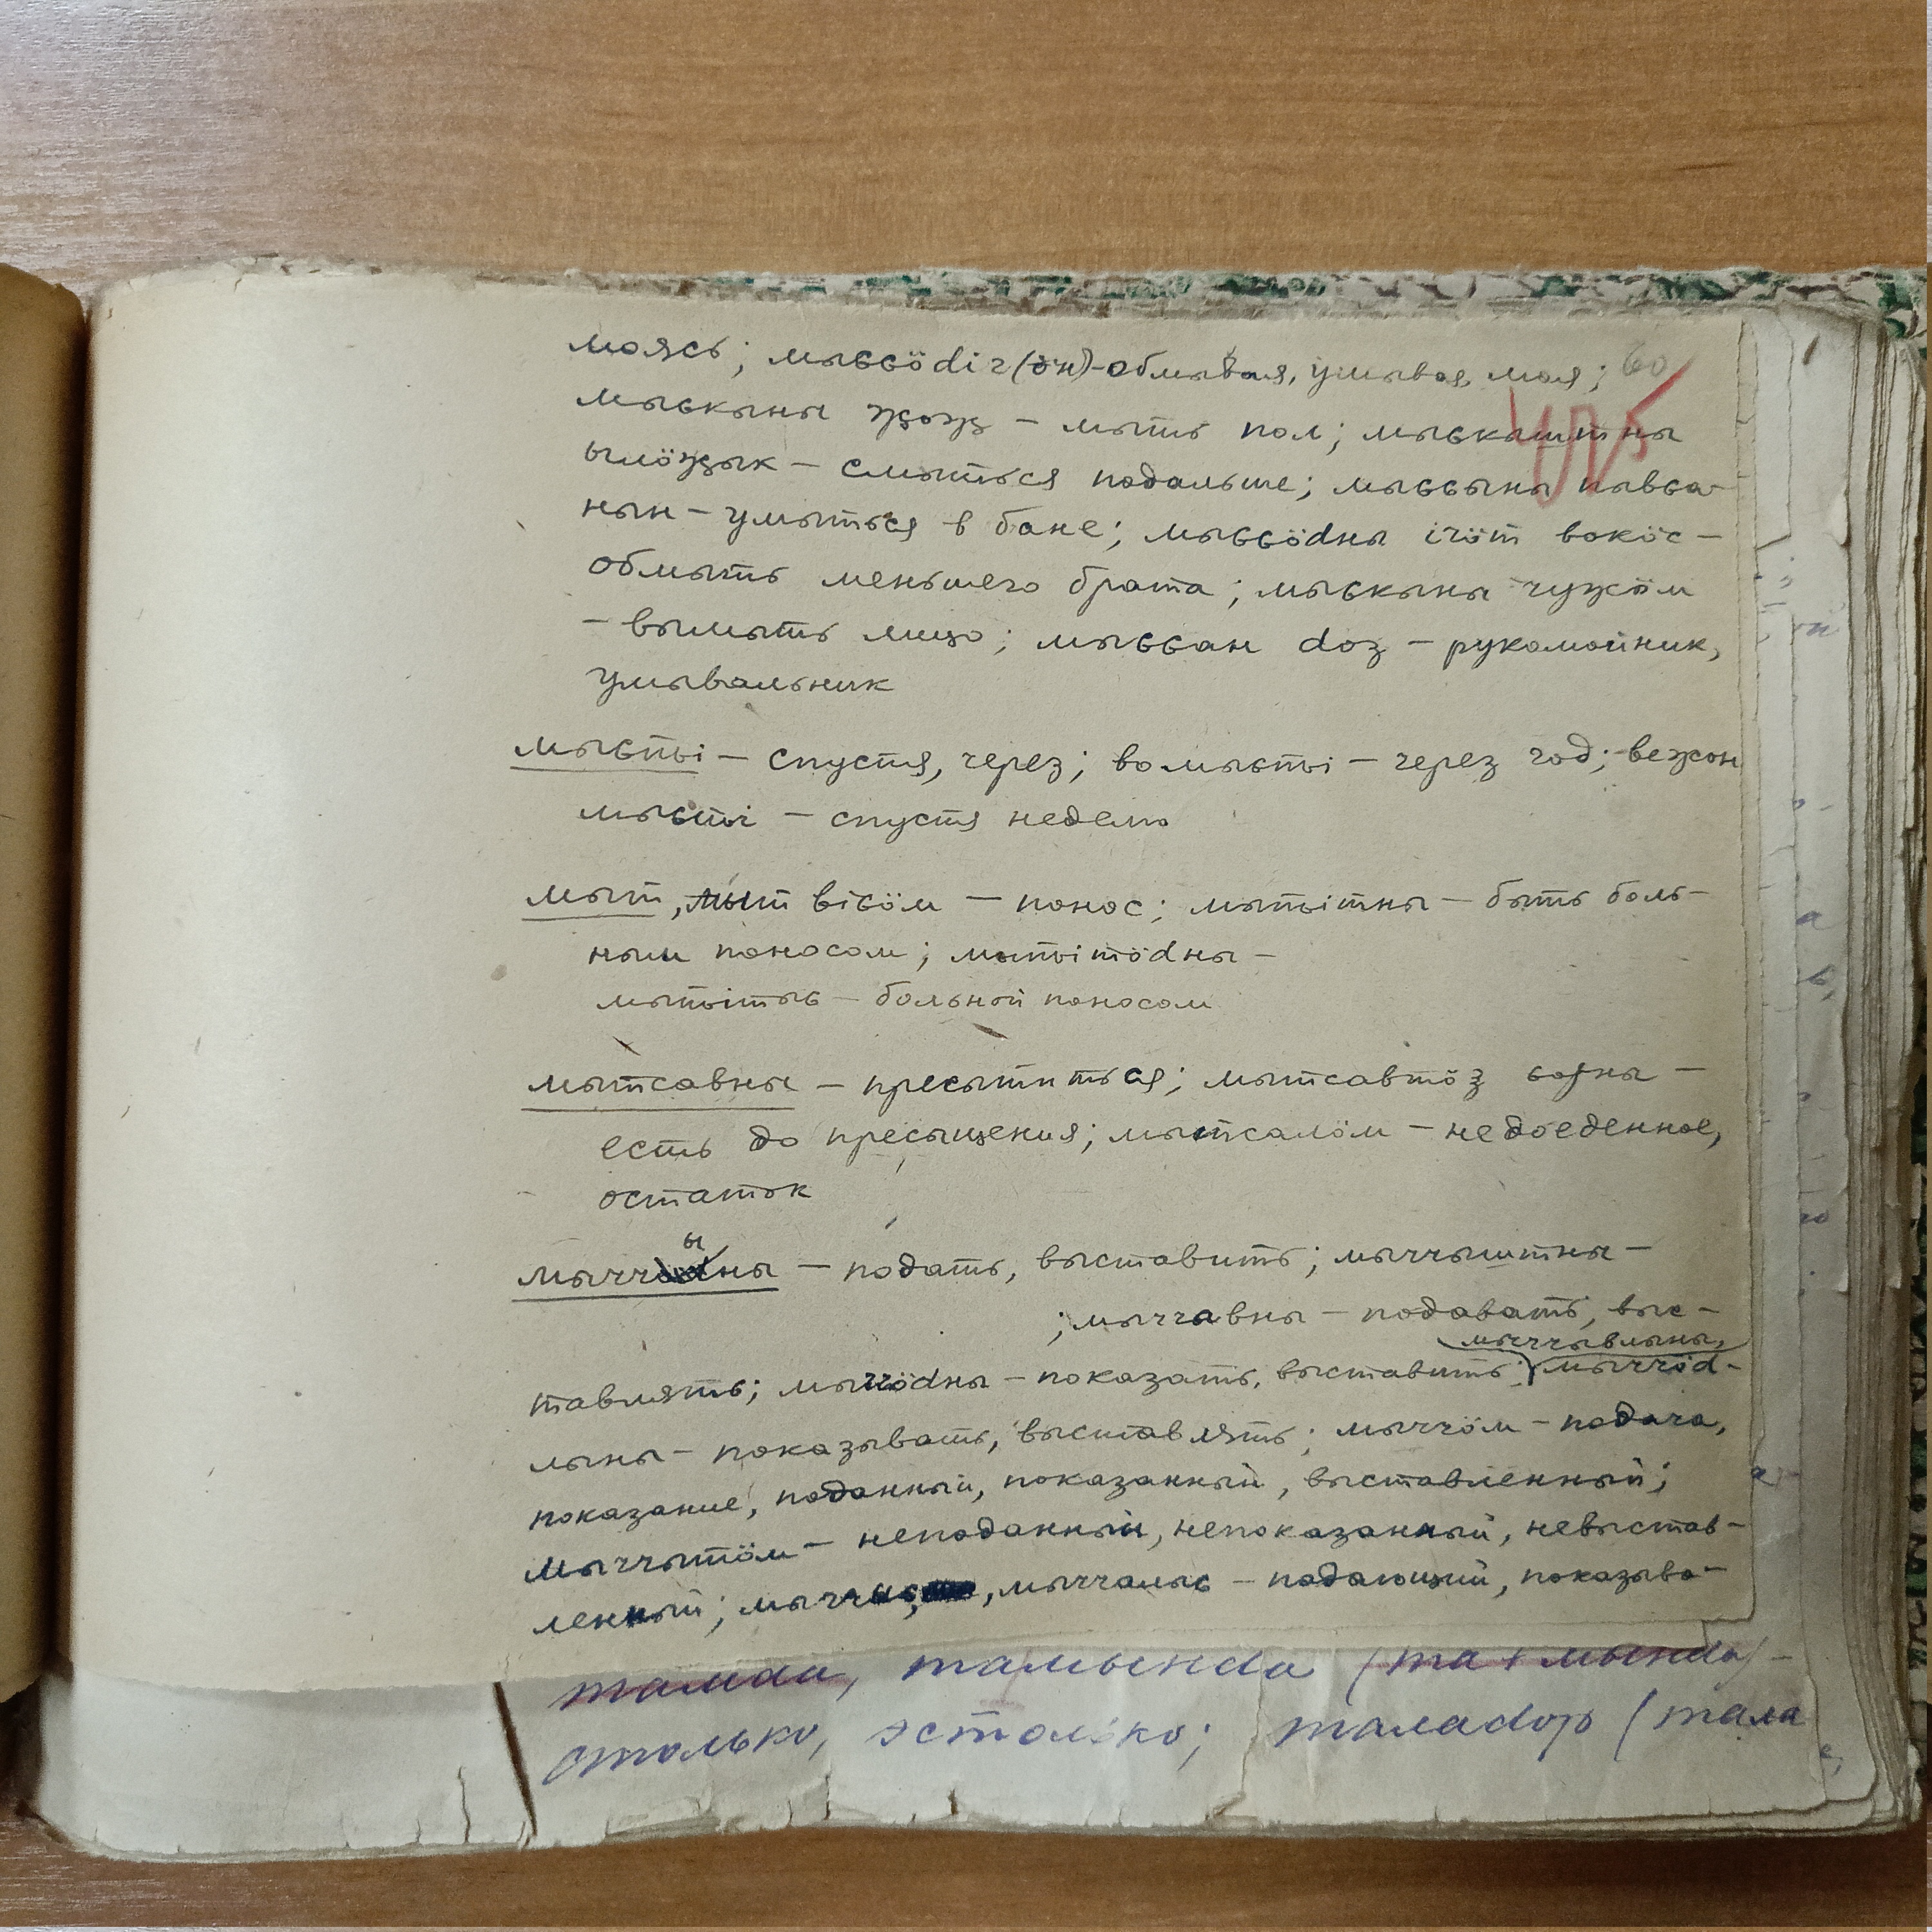 моясь; мыԍԍӧԁіг(ӧн)-обмывая, умывая, моя; 60
мыԍкыны җоҗ – мыть пол; мыԍкыштны
ылӧҗык – смыться подальше; мыԍԍыны пывԍа-
нын – умыться в бане; мыԍԍӧԁны ічӧт вокӧс –
обмыть меньшего брата; мыԍкыны чужӧм
– вымыть лицо; мыԍԍан ԁоз – рукомойник,
умывальник
мыԍԏі – спустя, через; во мыԍԏі – через год; вежон
мыԍԏі – спустя неделю
мыт, мыт віԍӧм – понос; мыԏітны – быть боль-
ным поносом; мыԏітӧԁны –
мыԏітыԍ – больной поносом
мытсавны – пресытиться; мытсавтӧз ԍојны –
есть до пресыщения; мытсалӧм – недоеденное,
остаток
мыччыны – подать, выставить; мыччыштны –
; мыччавны – подавать, выс-
мыччывлыны,
тавлять; мыччӧԁны – показать, выставить; мыччӧԁ-
лыны – показывать, выставлять; мыччӧм – подача,
показание, поданный, показанный, выставленный;
мыччытӧм – неподанный, непоказанный, невыстав-
ленный; мыччыԍ, мыччалыԍ – подающий, показыва-
тамԁа, тамынԁа (та + мынԁа) –
столько, эстолько; талаԁор (тала